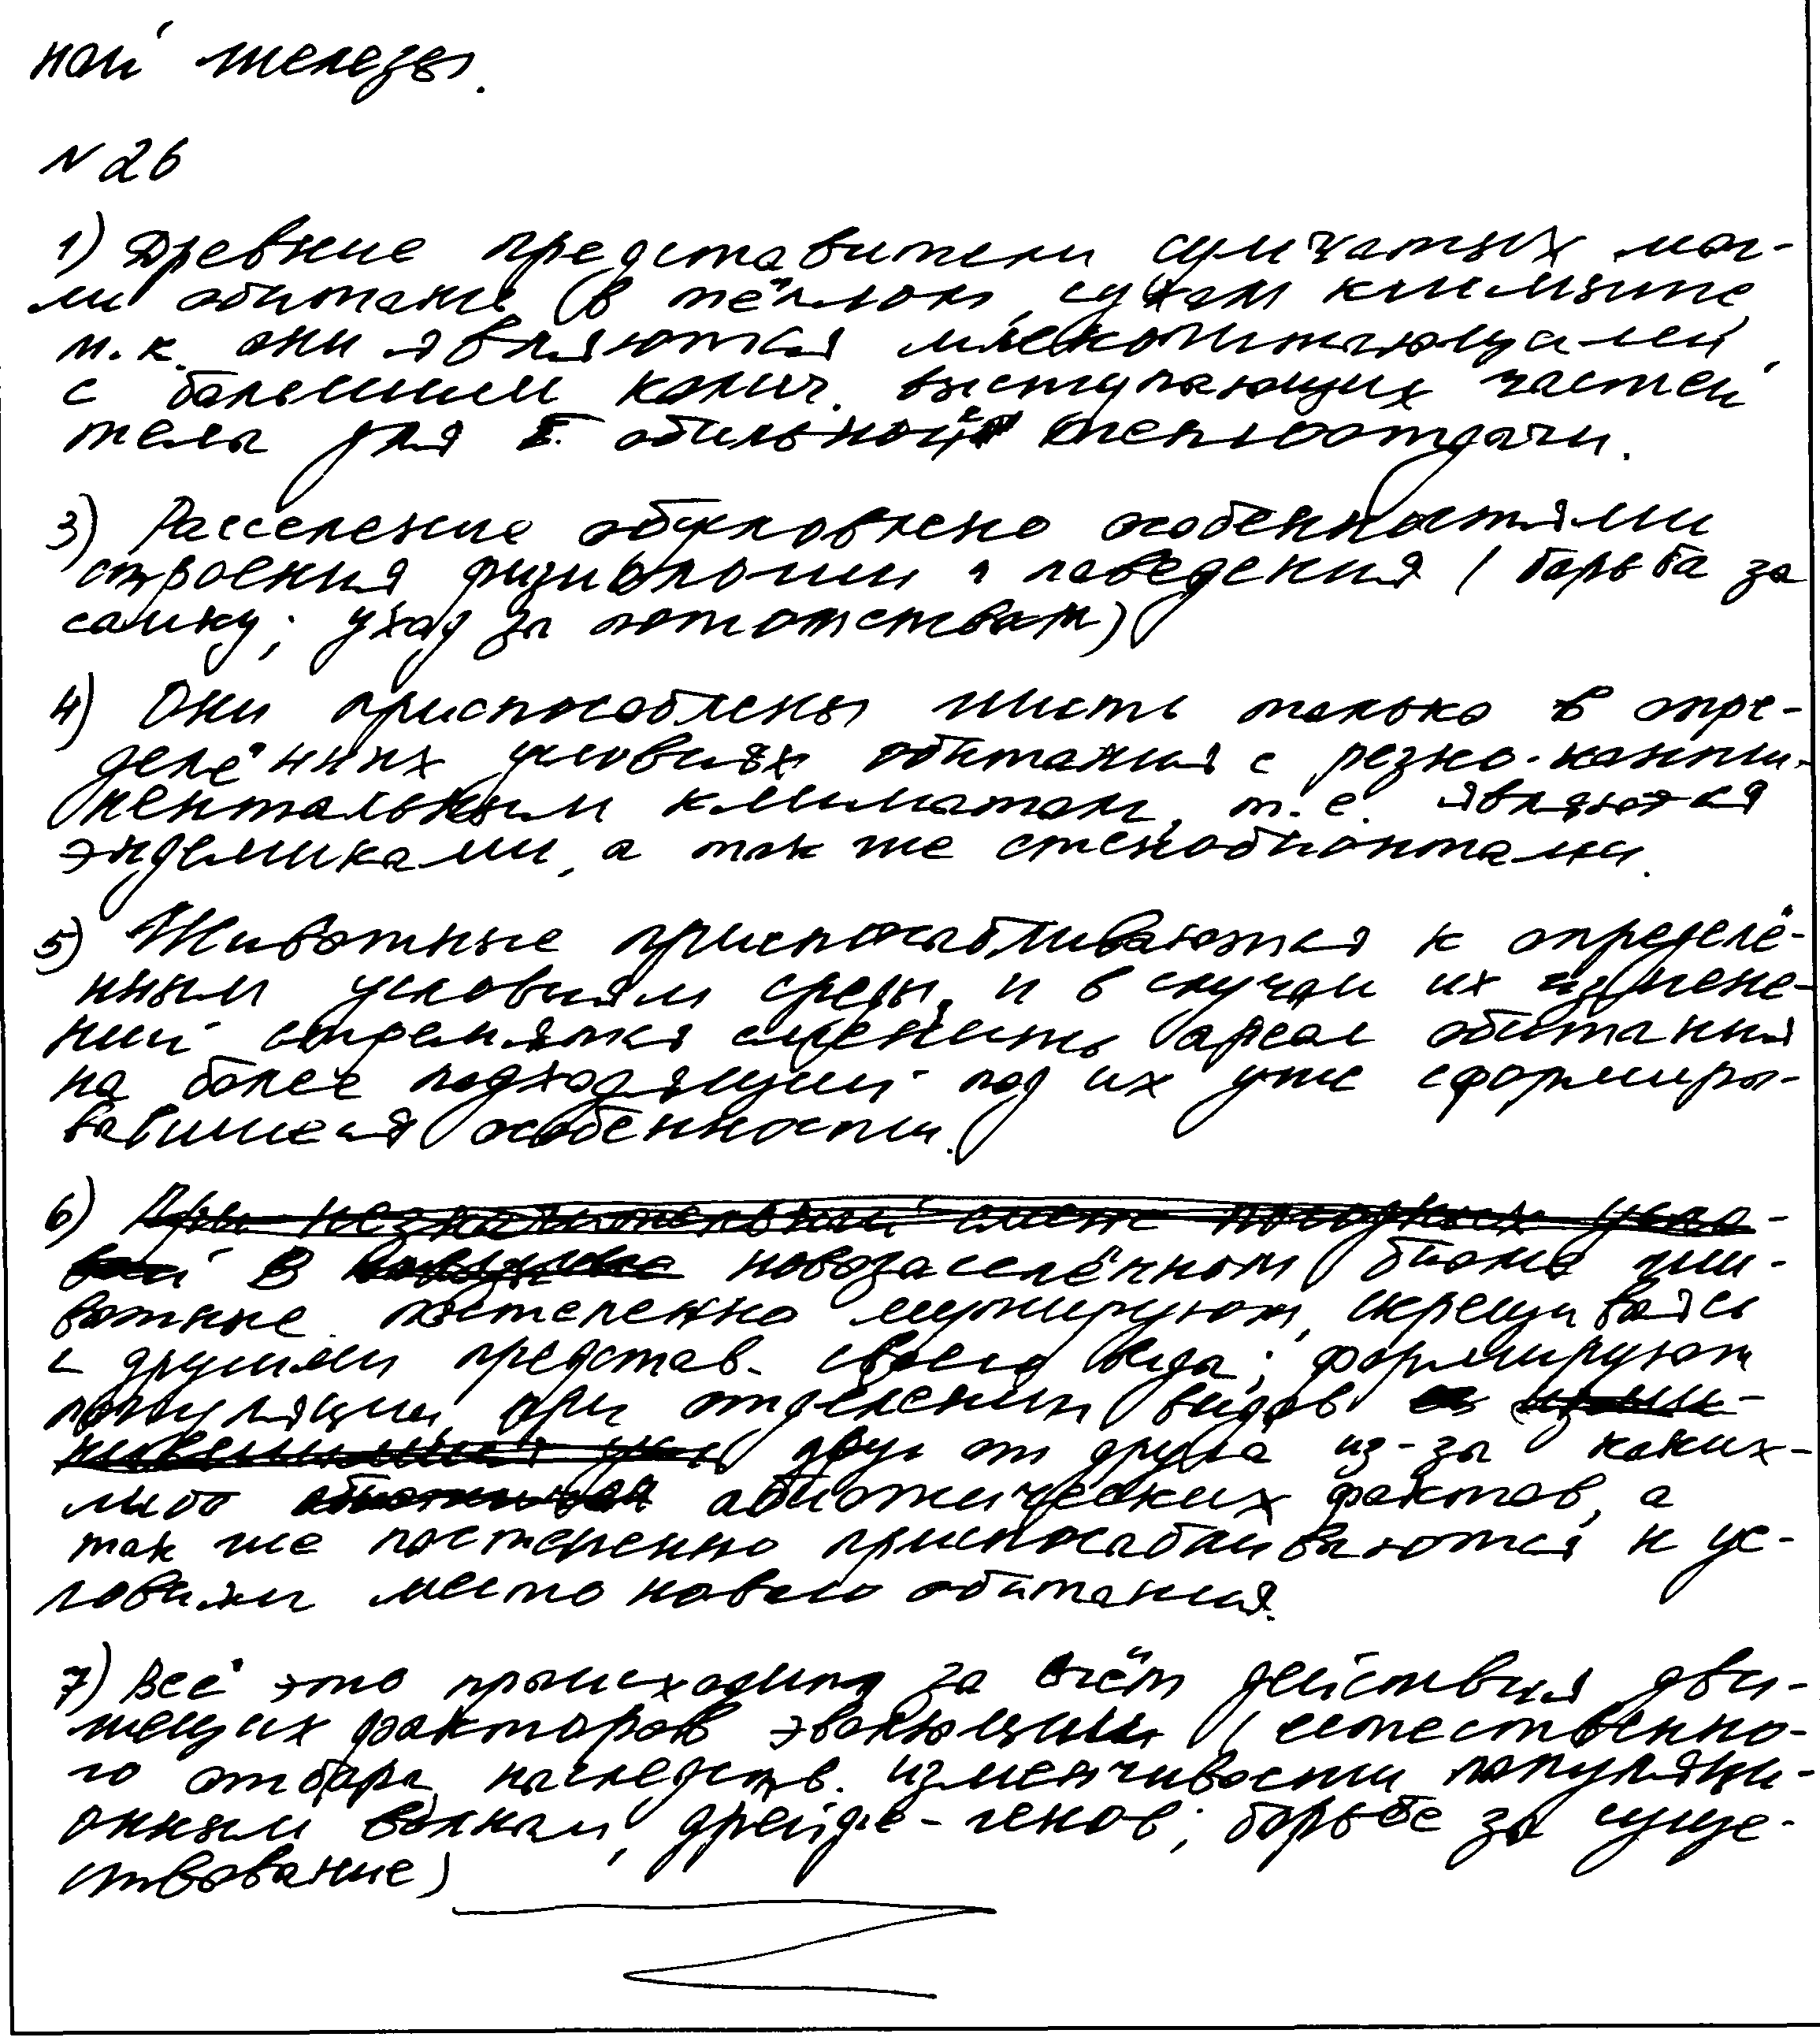 ной железы.
N 26
1) Древние представители сумчатых мог-
ли обитание в тёплом, сухом климате,
т.к. они являются млекопитающими
с большим колич. выступающих частей
тела для обильной теплоотдачи.
3) Расселение обусловлено особенностями
строения физиологии и поведения (борьба за
самку; уход за потомством)
4) Они приспособлены жить только в опре-
делённых условиях обитания с резко-конти-
нентальным климатом, т.е. являются
эндемиками, а так же стенобионтами.
5) Животные приспосабливаются к определё-
нным условиям среды, и в случаи их измене-
ний стремятся сменить ареал обитания
на более подходящий под их уже сформиро-
вавшиеся особенности.
6) При незначительной смене погодных усло-
вий В новозаселённом биоме жи-
вотные постепенно мутируют, скрещиваясь
с другими представ. своего вида; формируют
популяции при отделении видов
друг от друга из-за каких-
либо абиотических фактов, а
так же постепенно приспосабливаются к ус-
ловиям место нового обитания.
7) Всё это происходит за счёт действия дви-
жущих факторов эволюции (естественно-
го отбора, наследств. изменчивости популяци-
онным волнам, дрейфе-генов; борьбе за суще-
ствование)